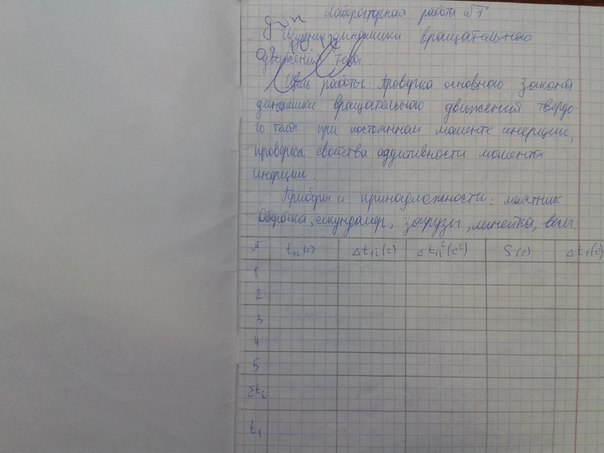 Лабораторная работа №
Изучение динамики вращательного
движения тела
Цель работы: Проверка основного закона
динамики вращательного движения твердо-
го тела при постоянном моменте инерции,
проверка свойства аддитивности момента
инерции.
Приборы и принадлежности: маятник
Обербека, секундомер, грузы, линейка, весы.
№ t₁ᵢ(с) Δt₁ᵢ(с) Δt₁ᵢ²(с²) S(с) Δt₁(с)
1
2
3
4
5
Σtᵢ
t₁